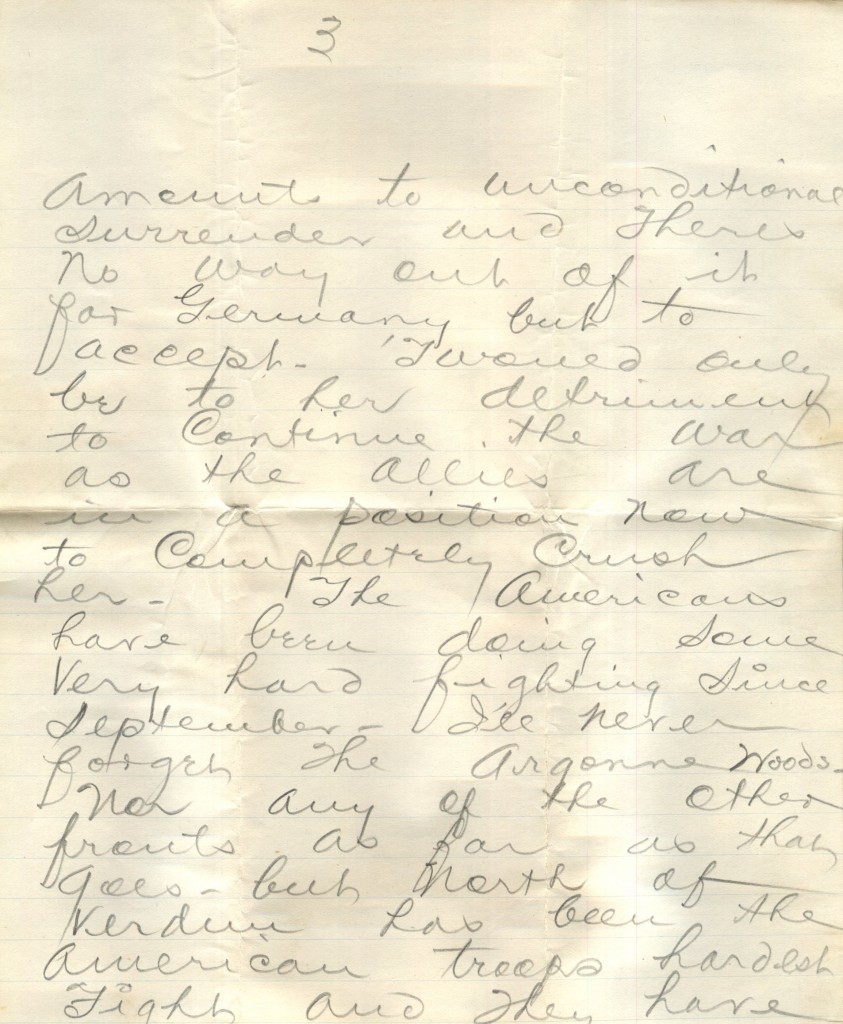 3
Amounts to unconditional
surrender and Theres
No way out of it
for Germany but to
accept - 'Twoued only
be to her detriment
to Continue the war
as the Allies are
in a position now
to Completely Crush
her - The Americans
have been doing some
Very hard fighting Since
September - I'll never
forget The Argonne Woods -
Nor any of the other
fronts as far as that
goes - but North of
Verdun has been the
American troops hardest
Fight and They have